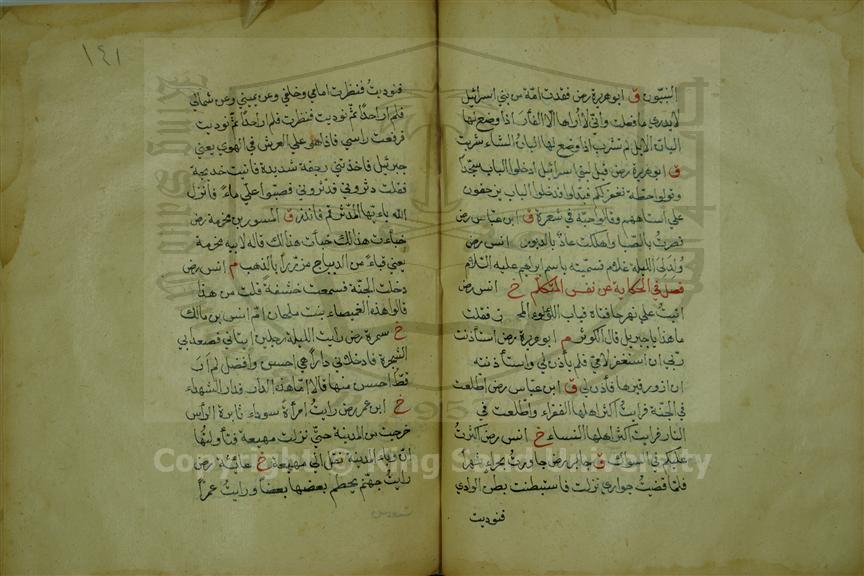 النبيّون ق ابو هريرة رض فقدت امّة من بني اسرائيل
لا يدري ما فعلت وانّي لا أراها الا الفأر اذا وضع لها
البان الابل لم تشرب اذا وضع لها البان الشاء شربت
ق ابو هريرة رض قيل لبني اسرائيل ادخلوا الباب سجّداً
وقولوا حطة نغفر لكم فبدلوا فدخلوا الباب يزحفون
على استاههم وقالوا حبّة في شعرة ق ابن عبّاس رض
نصرتُ بالصّبا واهلكت عادٌ بالدبور انس رض
ولد لي الليلة غلام فسمّيته باسم ابراهيم عليه السلام
فصل في الحكاية عن نفس المتكلّم خ انس رض
اتيتُ على نهر حافتاه قباب اللؤلؤ المجوّف فقلت
ما هذا يا جبريل قال الكوثر م ابو هريرة رض استأذنت
ربّي ان استغفر لامّي فلم يأذن لي واستأذنته
ان ازور قبرها فاذن لي ق ابن عبّاس رض اطّلعت
في الجنة فرايتُ اكثر اهلها الفقراء واطّلعت في
النار فرايت اكثر اهلها النساء خ انس رض اكثرتُ
عليكم في السواك ق جابر رض جاورتُ بحراء شهراً
فلمّا قضيتُ جواري نزلت فاستبطنت بطن الوادي
فنوديت
١٤١
فنوديتُ فنظرت امامي وخلفي وعن يميني وعن شمالي
فلم ار احداً ثمّ نوديت فنظرت فلم ار احداً ثمّ نوديت
فرفعت راسي فاذا هو على العرش في الهوي يعني
جبرئيل فاخذتني رجفة شديدة فاتيت خديجة
فقلت دثّروني فدثّروني فصبّوا عليّ ماءً فانزل
الله يا ايها المدّثّر قم فانذر ق المسور بن مخرمة رض
خبأت هذا لك خبأت هذا لك قاله لابيه مخرمة
يعني قباءً من الديباج مزرّراً بالذهب م انس رض
دخلت الجنّة فسمعت خشفة قلت من هذا
قالوا هذه الغميصاء بنت ملحان امّ انس بن مالك
خ سمرة رض رايت الليلة رجلين اتياني فصعدا بي
الشجرة فادخلاني داراً هي احسن وافضل لم ارَ
قطّ احسن منها قالا امّا هذه الدار فدار الشهداء
خ ابن عمر رض رايتُ امرأةً سوداء ثايرة الراس
خرجت من المدينة حتّى نزلت مهيعة فتأولتها
انّ وباء المدينة نقل الى مهيعة خ عائشة رض
رايتُ جهنّم يحطم بعضها بعضاً ورايتُ عمراً
Copyright © King Saud University